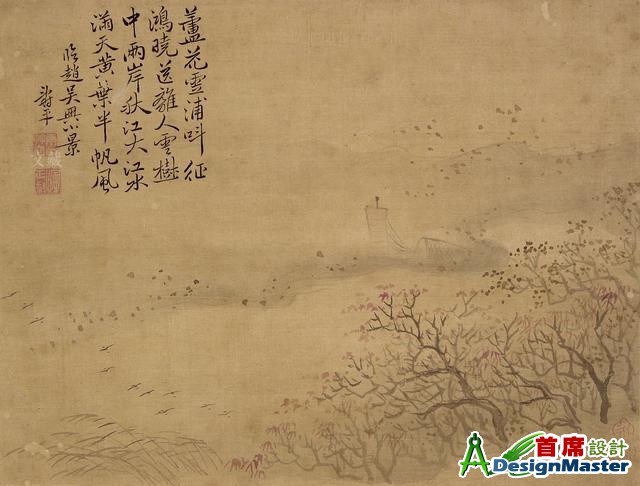 蘆花雲浦叫征
鴻曉送離人雲樹
中兩岸秋江大江水
滿天黃葉半帆風
臨趙吳興小景
首席設計
DesignMaster